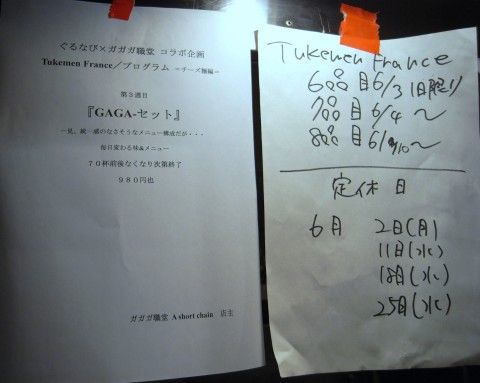 ぐるなび×ガガガ職堂 コラボ企画
Tukemen France／プログラム ＝チーズ麺編＝
第３週目
『GAGA-セット』
一見、統一感のなさそうなメニュー構成だが・・・
毎日変わる味&メニュー
７０杯前後なくなり次第終了
９８０円也
ガガガ職堂 A short chain 店主
Tukemen France
6品目 6/3 1日限り
7品目 6/4～
8品目 6/10～
定休日
6月 2日(月)
11日(水)
18日(水)
25日(水)